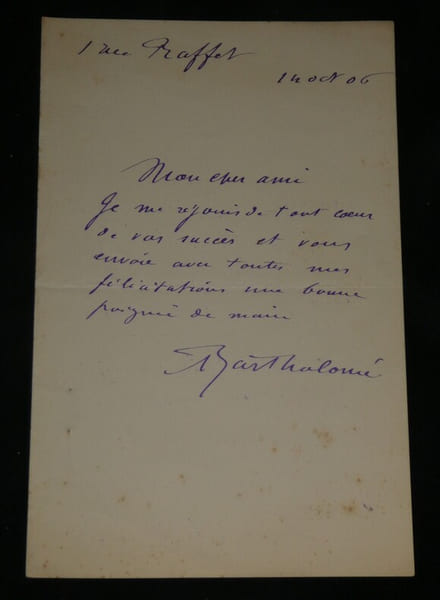 1 rue Raffet
1 Noct 06
Mon cher ami
Je me rejouis de tout cœur
de vos succès et vous
envoie avec toutes mes
félicitations une bonne
poignée de main
Bartholomé